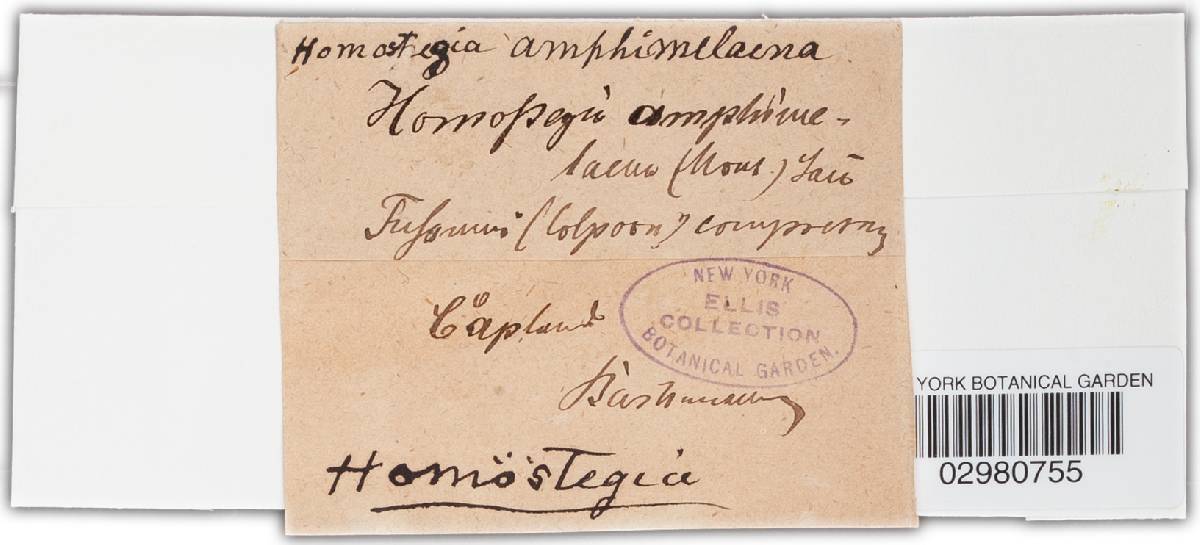 Homostegia amphimelaena
Homostegia amphime-
laena (Mont.) Sacc
Fusanus (Colpoon) compressus
Capland
NEW YORK
ELLIS
COLLECTION
BOTANICAL GARDEN.
Homostegia
YORK BOTANICAL GARDEN
02980755